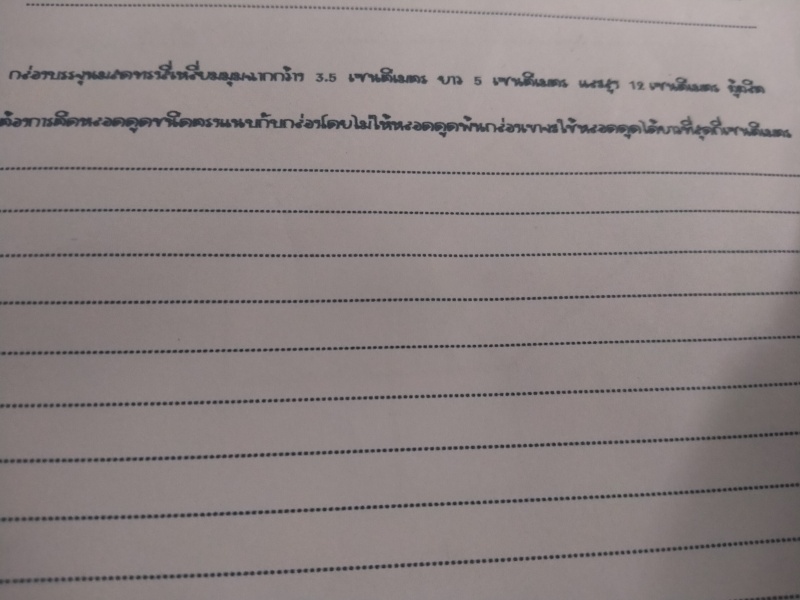 กล่องบรรจุนมสดทรงสี่เหลี่ยมมุมฉากกว้าง 3.5 เซนติเมตร ยาว 5 เซนติเมตร และสูง 12 เซนติเมตร ผู้ผลิต
ต้องการติดหลอดดูดชนิดตรงแนบกับกล่องโดยไม่ให้หลอดดูดพ้นกล่องเขาจะใช้หลอดดูดได้ยาวที่สุดกี่เซนติเมตร